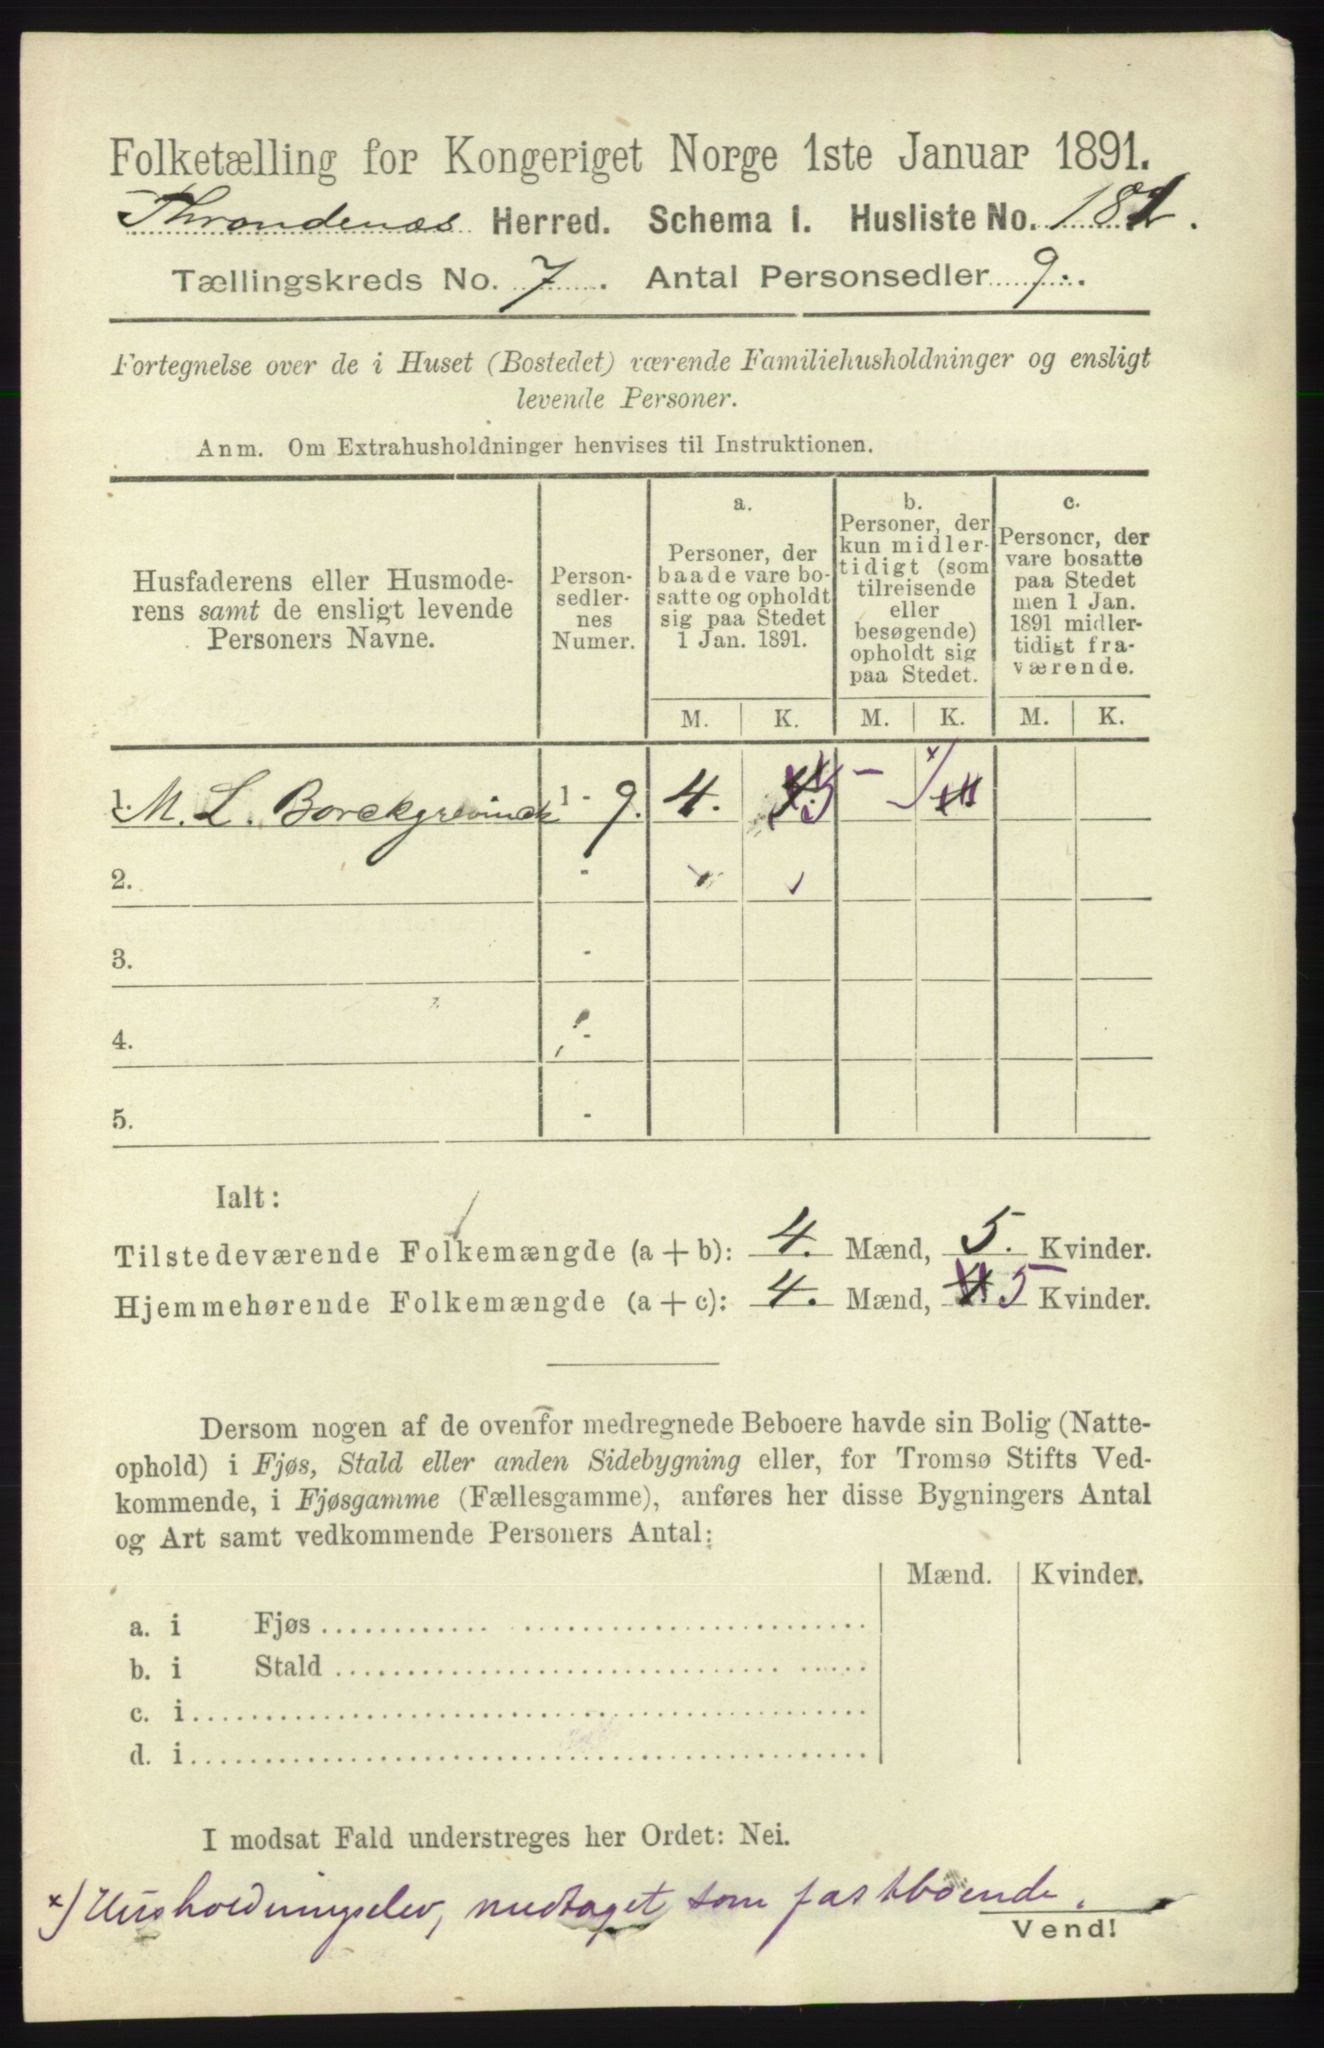 Folketælling for Kongeriget Norge 1ste Januar 1891.
Throndenæs Herred. Schema I. Husliste No.
Tællingskreds No. 7. Antal Personsedler 9.
Fortegnelse over de i Huset (Bostedet) værende Familiehusholdninger og ensligt
levende Personer.
Anm. Om Extrahusholdninger henvises til Instruktionen.
Husfaderens eller Husmode-
rens samt de ensligt levende
Personers Navne.
Person-
sedler-
nes
Numer.
a.
Personer, der
baade vare bo-
satte og opholdt
sig paa Stedet
1 Jan. 1891.
b.
Personer, der
kun midler-
tidigt (som
tilreisende
eller
besøgende)
opholdt sig
paa Stedet.
c.
Personer, der
vare bosatte
paa Stedet
men 1 Jan.
1891 midler-
tidigt fra-
værende.
M. K. M. K. M. K.
1. M. L. Borckgrevinck 1 - 9. 4. 5 -
2. -
3. -
4. -
5. -
Ialt:
Tilstedeværende Folkemængde (a + b): 4. Mænd, 5. Kvinder.
Hjemmehørende Folkemængde (a + c): 4. Mænd, 5 Kvinder.
Dersom nogen af de ovenfor medregnede Beboere havde sin Bolig (Natte-
ophold) i Fjøs, Stald eller anden Sidebygning eller, for Tromsø Stifts Ved-
kommende, i Fjøsgamme (Fællesgamme), anføres her disse Bygningers Antal
og Art samt vedkommende Personers Antal:
Mænd. Kvinder.
a. i Fjøs
b. i Stald
c. i
d. i
I modsat Fald understreges her Ordet: Nei.
x) Husholdningselev, medtaget som fastboende.
Vend!